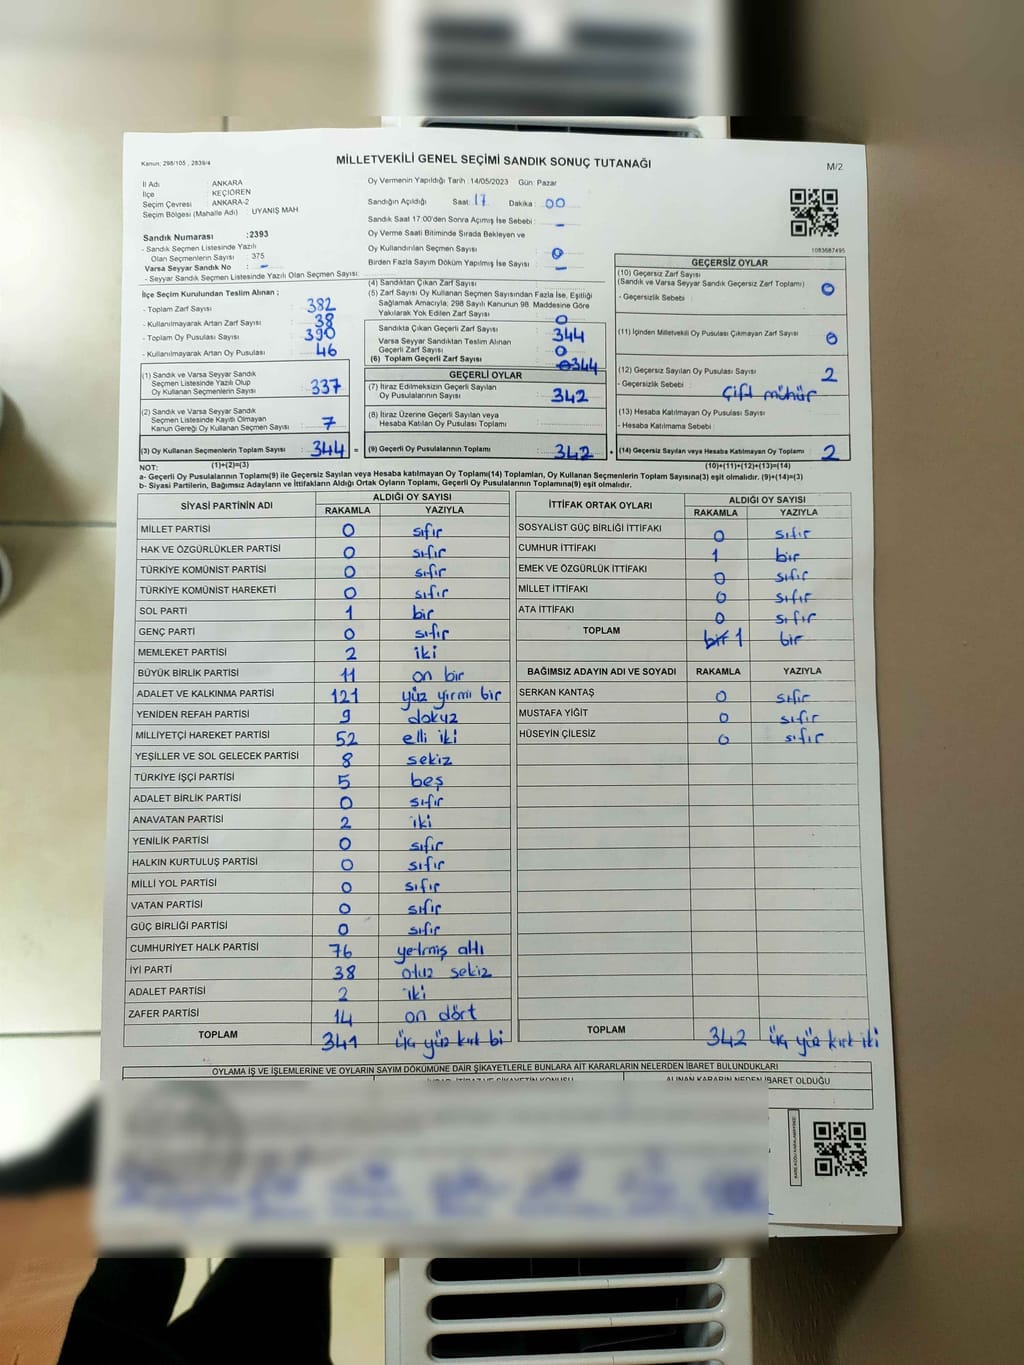 Kanun, 298/105 , 2839/4
MİLLETVEKİLİ GENEL SEÇİMİ SANDIK SONUÇ TUTANAĞI
M/2
İl Adı : ANKARA
İlçe : KEÇİÖREN
Seçim Çevresi : ANKARA-2
Seçim Bölgesi (Mahalle Adı) : UYANIŞ MAH
Oy Vermenin Yapıldığı Tarih : 14/05/2023 Gün: Pazar
Sandığın Açıldığı Saat: 17 Dakika : 00
Sandık Saat 17:00'den Sonra Açımış İse Sebebi : -
Oy Verme Saati Bitiminde Sırada Bekleyen ve
Oy Kullandırılan Seçmen Sayısı : 0
Birden Fazla Sayım Döküm Yapılmış İse Sayısı : -
1083687495
Sandık Numarası :2393
- Sandık Seçmen Listesinde Yazılı
Olan Seçmenlerin Sayısı : 375
Varsa Seyyar Sandık No : -
- Seyyar Sandık Seçmen Listesinde Yazılı Olan Seçmen Sayısı:
İlçe Seçim Kurulundan Teslim Alınan ;
- Toplam Zarf Sayısı : 382
- Kullanılmayarak Artan Zarf Sayısı : 38
- Toplam Oy Pusulası Sayısı : 390
- Kullanılmayarak Artan Oy Pusulası : 46
(1) Sandık ve Varsa Seyyar Sandık
Seçmen Listesinde Yazılı Olup
Oy Kullanan Seçmenlerin Sayısı : 337
(2) Sandık ve Varsa Seyyar Sandık
Seçmen Listesinde Kayıtlı Olmayan
Kanun Gereği Oy Kullanan Seçmen Sayısı : 7
(3) Oy Kullanan Seçmenlerin Toplam Sayısı : 344 =
(1)+(2)=(3)
(4) Sandıktan Çıkan Zarf Sayısı :
(5) Zarf Sayısı Oy Kullanan Seçmen Sayısından Fazla İse, Eşitliği
Sağlamak Amacıyla; 298 Sayılı Kanunun 98. Maddesine Göre
Yakılarak Yok Edilen Zarf Sayısı : 0
Sandıkta Çıkan Geçerli Zarf Sayısı : 344
Varsa Seyyar Sandıktan Teslim Alınan
Geçerli Zarf Sayısı : 0
(6) Toplam Geçerli Zarf Sayısı : 344
GEÇERLİ OYLAR
(7) İtiraz Edilmeksizin Geçerli Sayılan
Oy Pusulalarının Sayısı : 342
(8) İtiraz Üzerine Geçerli Sayılan veya
Hesaba Katılan Oy Pusulaları Toplamı :
(9) Geçerli Oy Pusulalarının Toplamı : 342 +
GEÇERSİZ OYLAR
(10) Geçersiz Zarf Sayısı
(Sandık ve Varsa Seyyar Sandık Geçersiz Zarf Toplamı) : 0
- Geçersizlik Sebebi :
(11) İçinden Milletvekili Oy Pusulası Çıkmayan Zarf Sayısı : 0
(12) Geçersiz Sayılan Oy Pusulası Sayısı : 2
- Geçersizlik Sebebi : Çift mühür
(13) Hesaba Katılmayan Oy Pusulası Sayısı :
- Hesaba Katılmama Sebebi :
(14) Geçersiz Sayılan veya Hesaba Katılmayan Oy Toplamı : 2
(10)+(11)+(12)+(13)=(14)
NOT:
a- Geçerli Oy Pusulalarının Toplamı(9) ile Geçersiz Sayılan veya Hesaba katılmayan Oy Toplamı(14) Toplamları, Oy Kullanan Seçmenlerin Toplam Sayısına(3) eşit olmalıdır. (9)+(14)=(3)
b- Siyasi Partilerin, Bağımsız Adayların ve İttifakların Aldığı Ortak Oyların Toplamı, Geçerli Oy Pusulalarının Toplamına(9) eşit olmalıdır.
SİYASİ PARTİNİN ADI ALDIĞI OY SAYISI
RAKAMLA YAZIYLA
MİLLET PARTİSİ 0 sıfır
HAK VE ÖZGÜRLÜKLER PARTİSİ 0 sıfır
TÜRKİYE KOMÜNİST PARTİSİ 0 sıfır
TÜRKİYE KOMÜNİST HAREKETİ 0 sıfır
SOL PARTİ 1 bir
GENÇ PARTİ 0 sıfır
MEMLEKET PARTİSİ 2 iki
BÜYÜK BİRLİK PARTİSİ 11 on bir
ADALET VE KALKINMA PARTİSİ 121 yüz yirmi bir
YENİDEN REFAH PARTİSİ 9 dokuz
MİLLİYETÇİ HAREKET PARTİSİ 52 elli iki
YEŞİLLER VE SOL GELECEK PARTİSİ 8 sekiz
TÜRKİYE İŞÇİ PARTİSİ 5 beş
ADALET BİRLİK PARTİSİ 0 sıfır
ANAVATAN PARTİSİ 2 iki
YENİLİK PARTİSİ 0 sıfır
HALKIN KURTULUŞ PARTİSİ 0 sıfır
MİLLİ YOL PARTİSİ 0 sıfır
VATAN PARTİSİ 0 sıfır
GÜÇ BİRLİĞİ PARTİSİ 0 sıfır
CUMHURİYET HALK PARTİSİ 76 yetmiş altı
İYİ PARTİ 38 otuz sekiz
ADALET PARTİSİ 2 iki
ZAFER PARTİSİ 14 on dört
TOPLAM 341 üç yüz kırk bi
İTTİFAK ORTAK OYLARI ALDIĞI OY SAYISI
RAKAMLA YAZIYLA
SOSYALİST GÜÇ BİRLİĞİ İTTİFAKI 0 sıfır
CUMHUR İTTİFAKI 1 bir
EMEK VE ÖZGÜRLÜK İTTİFAKI 0 sıfır
MİLLET İTTİFAKI 0 sıfır
ATA İTTİFAKI 0 sıfır
TOPLAM bir 1 bir
BAĞIMSIZ ADAYIN ADI VE SOYADI RAKAMLA YAZIYLA
SERKAN KANTAŞ 0 sıfır
MUSTAFA YİĞİT 0 sıfır
HÜSEYİN ÇİLESİZ 0 sıfır
TOPLAM 342 üç yüz kırk iki
OYLAMA İŞ VE İŞLEMLERİNE VE OYLARIN SAYIM DÖKÜMÜNE DAİR ŞİKAYETLERLE BUNLARA AİT KARARLARIN NELERDEN İBARET BULUNDUKLARI
ALINAN KARARIN NEDEN İBARET OLDUĞU